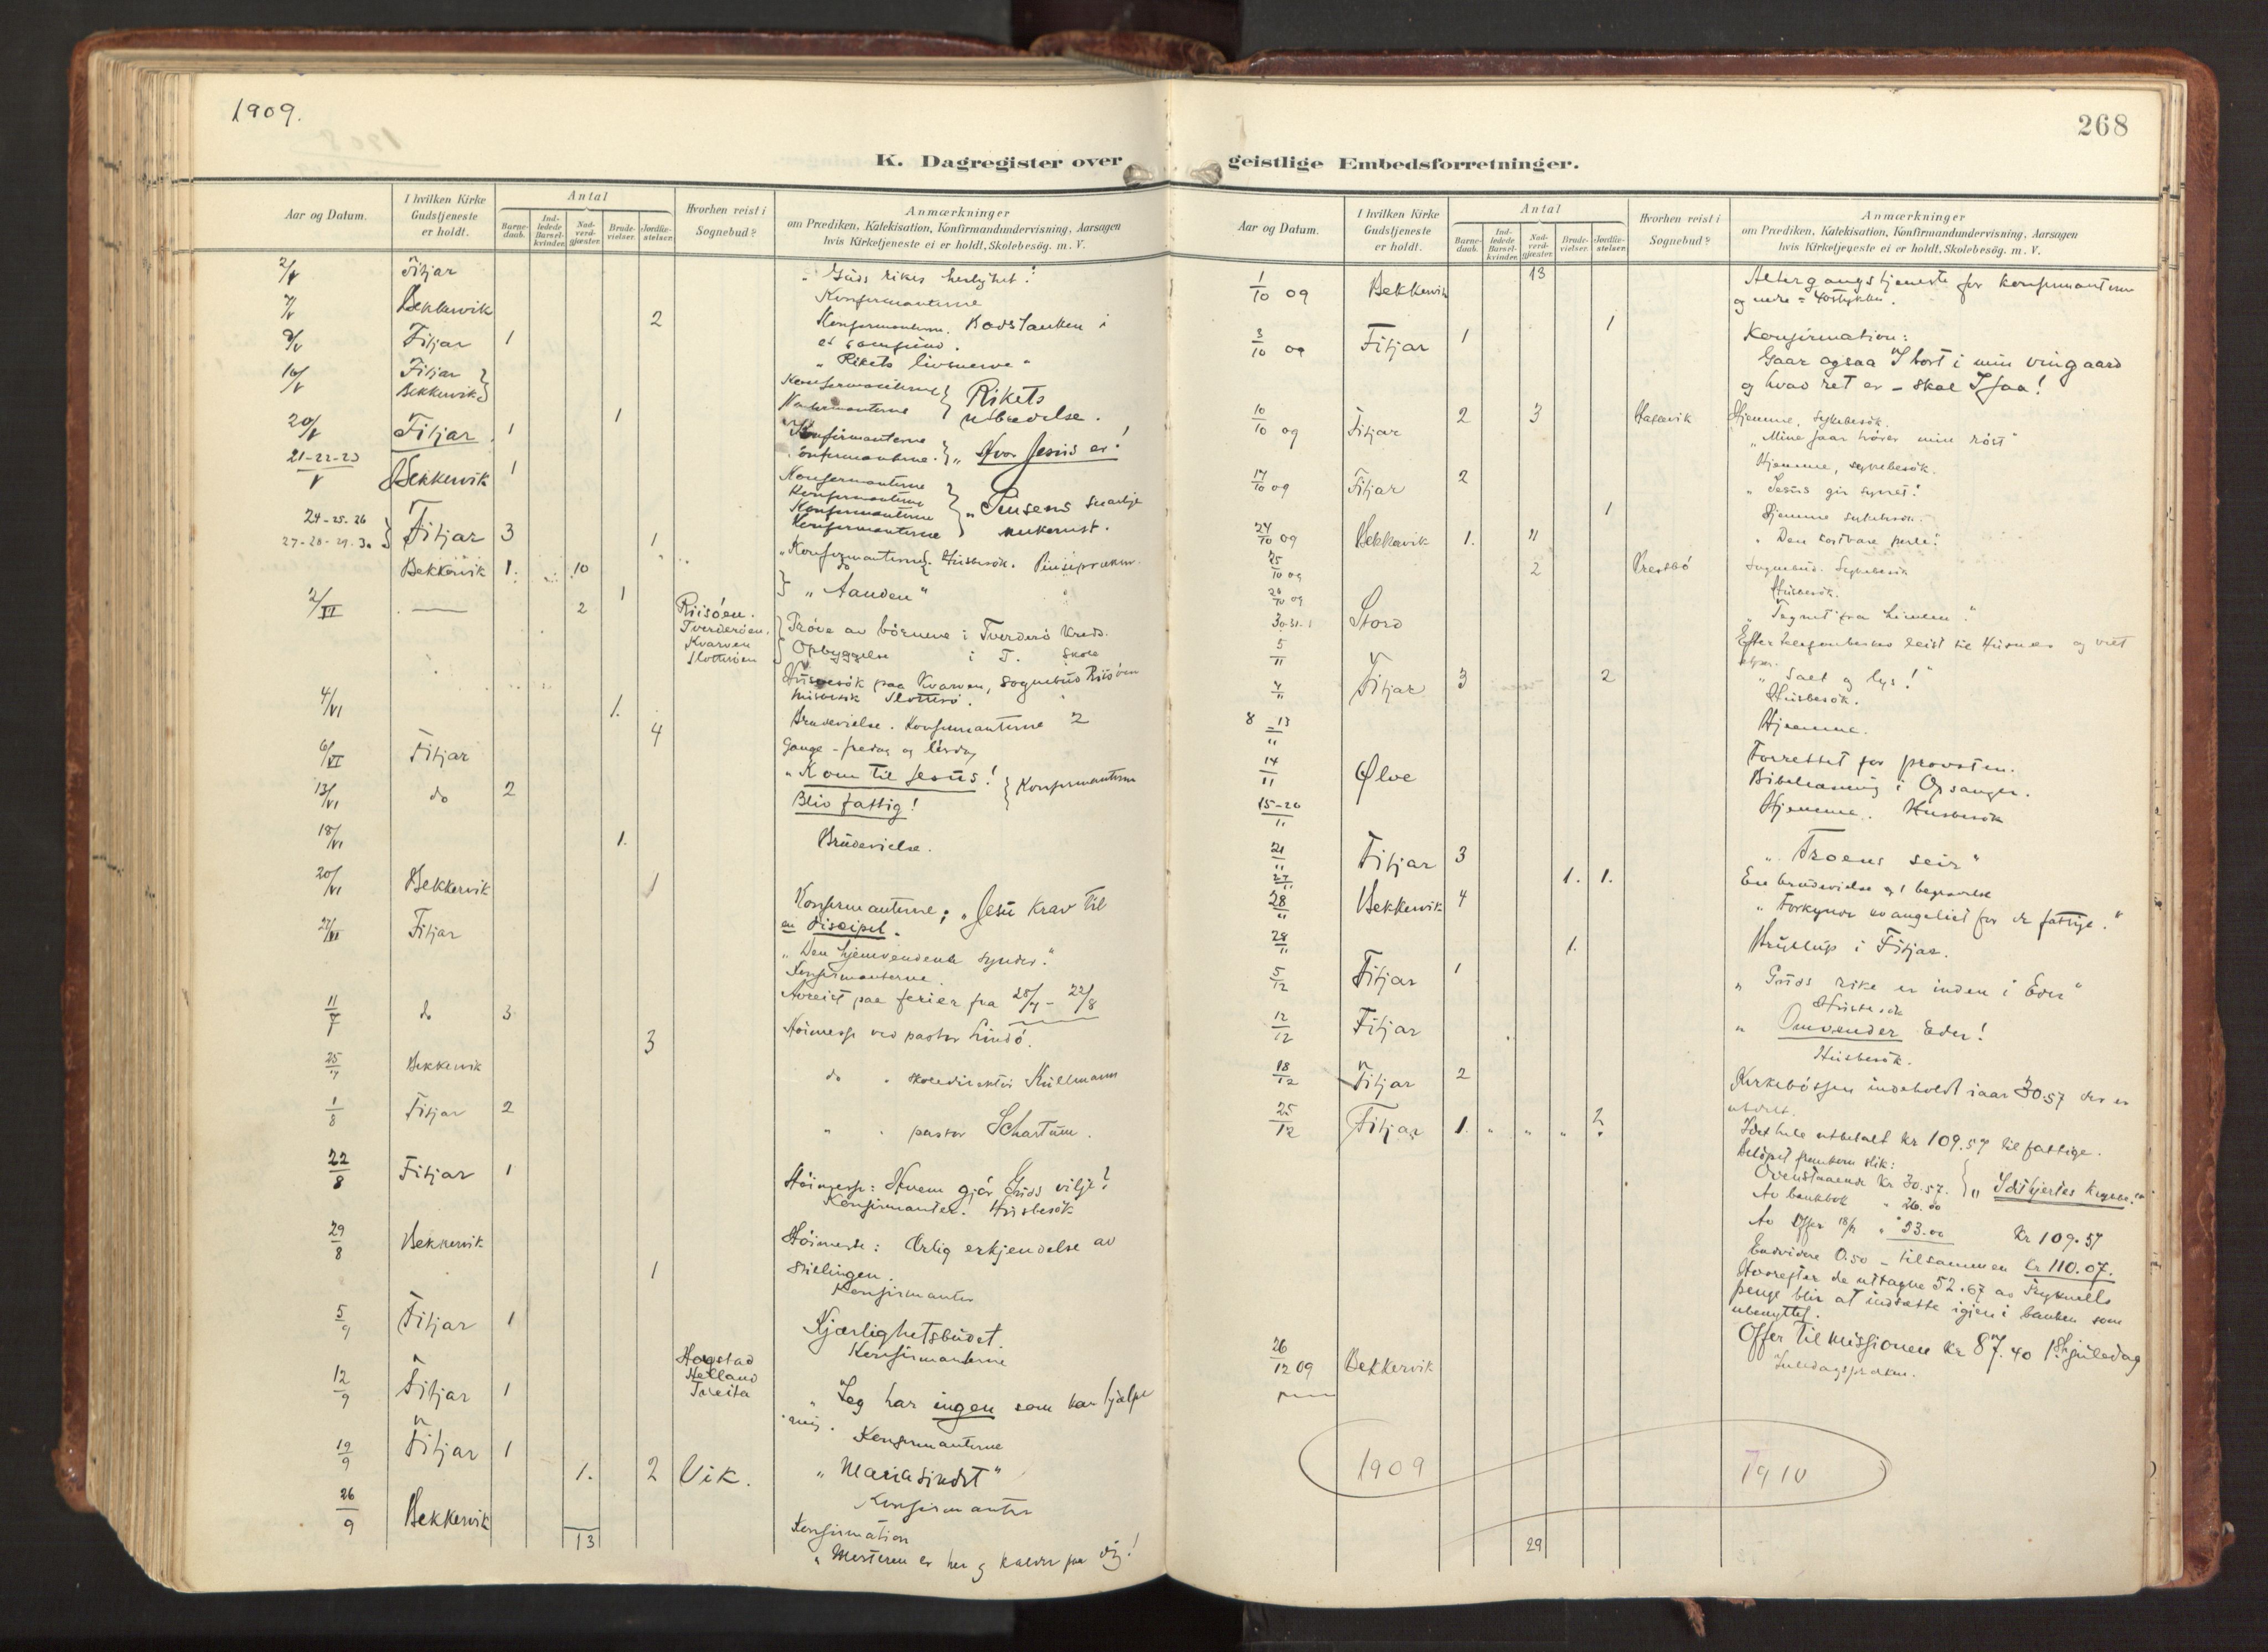 1909.
268
K. Dagregister over geistlige Embedsforretninger.
Aar og Datum.
I hvilken Kirke Gudstjeneste er holdt.
Antal
Barne-daab.
Ind-ledede Barsel-kvinder.
Nad-verd-gjæster.
Brude-vielser.
Jordfæ-stelser.
Hvorhen reist i Sognebud?
Anmærkninger
om Prædiken, Katekisation, Konfirmandundervisning, Aarsagen
hvis Kirketjeneste ei er holdt, Skolebesög. m. V.
2/V Fitjar Guds rikes herlighet!
Bekkervik Konfirmanterne
2
9/V Fitjar 1 Konfirmanterne.
et samfund.
"Rikets livsnerve"
16/V Fitjar
Bekkervik
Konfirmanterne Rikets
Konfirmanterne utbredelse.
20/V Fitjar 1 1 Konfirmanterne
Konfirmanterne. "Hvor Jesus er!
21-22-23/V Bekkervik 1
Konfirmanterne
Konfirmanterne
Konfirmanterne
Konfirmanterne
24-25-26
27-28-29-30 Fitjar 3 1
Bekkervik 1. 10 "Konfirmanterne. Husbesök.
1 "Aanden"
2/VI 2 Riisöen.
Tverderöen.
Kvarven
Slotteröen
Pröve av börnene i Tverderö Kreds.
Opbyggelse i T. Skole
Husbesök paa Kvarven, sognebud Riisöen
4/VI 1. Brudevielse. Konfirmanterne 2
4 Gange - fredag og lördag
6/VI Fitjar "Kom til Jesus!
13/VI do 2 Bliv fattig! Konfirmanterne
18/VI 1. Brudevielse.
20/VI Bekkervik 1 Konfirmanterne; "Jesu krav til
en discipel.
27/VI Fitjar "Den hjemvendende synder."
Konfirmanterne.
Avreist paa ferier fra - 22/8
11/7 do 3 Höimesse ved pastor Lindö.
3
25/7 Bekkervik do skoledirektör Küllmann
1/8 Fitjar 2 pastor Schartum.
22/8 Fitjar 1 Höimesse: Hvem gjör Guds vilje?
Konfirmanter. Husbesök
29/8 Bekkervik Höimesse: Ærlig erkjendelse av
1 stillingen.
Konfirmanter
5/9 Fitjar 1 Kjærlighetsbudet.
Konfirmanterne
Hogstad
Helland
Tveita
12/9 Fitjar 1 "Jeg har ingen som kan hjelpe
mig.
Konfirmanterne
19/9 Fitjar 1
1. 2 Vik. "Mariasindet"
Konfirmanter
26/9 Bekkervik Konfirmation
13 "Mesteren er her og kalder paa dig!
Aar og Datum.
I hvilken Kirke Gudstjeneste er holdt.
Antal
Barne-daab.
Ind-ledede Barsel-kvinder.
Nad-verd-gjæster.
Brude-vielser.
Jordfæ-stelser.
Hvorhen reist i Sognebud?
Anmærkninger
om Prædiken, Katekisation, Konfirmandundervisning, Aarsagen
hvis Kirketjeneste ei er holdt, Skolebesög. m. V.
1/10 09 Bekkervik 13 Altergangstjeneste for konfirmanterne
1
3/10 09 Fitjar 1 Konfirmation:
Gaar ogsaa I bort i min vingaard
og hvad ret er - skal I faa!
10/10 09 Fitjar 2 3 Hjemme, sykebesök.
"Mine faar hörer min röst"
17/10 09 Fitjar 2 Hjemme, sykebesök.
"Jesus gir synet!
1 Hjemme sykebesök.
24/10 09 Bekkervik 1. 11 "Den kostbare perle!
25/10 09 2 Sognebud. Sykebesök
Husbesök.
Stord
5/11 Efter telefonbesked reist til Husnes
7/11 Fitjar 3 2 "Salt og lys!"
Husbesök.
8-13/11 Hjemme.
14/11 Ølve Forrettet for provsten.
Bibellæsning i Opsanger.
15-20/11 Hjemme. Husbesök
21/11 Fitjar 3 "Troens seir"
27/11 1. 1. En brudevielse og 1 begravelse
28/11 Bekkervik 4 "Forkynde evangeliet for de fattige."
28/11 1. Bryllup i Fitjar.
5/12 Fitjar 1 "Guds rike er inden i Eder"
Husbesök
12/12 Fitjar "Omvender Eder!
Husbesök.
18/12 Fitjar 2 Kirkebössen indeholdt iaar 30.57 der er
utdelt.
25/12 Fitjar 1. " " " 2 Idethele utbetalt kr 109.57 til fattige.
Belöpet fremkom slik:
Ovenstaaende kr 30.57.
Av bankbok
Av Offer
Kr 109.57
Endvidere 0.50 - tilsammen kr 110.07.
Hvorefter de uttagne 52.67 av
penge blir at indsætte igjen i banken som
ubenyttet.
Offer til missionen kr 87.40 1ste juledag
26/12 09 Bekkervik Juledagspræken.
1909 1910
29